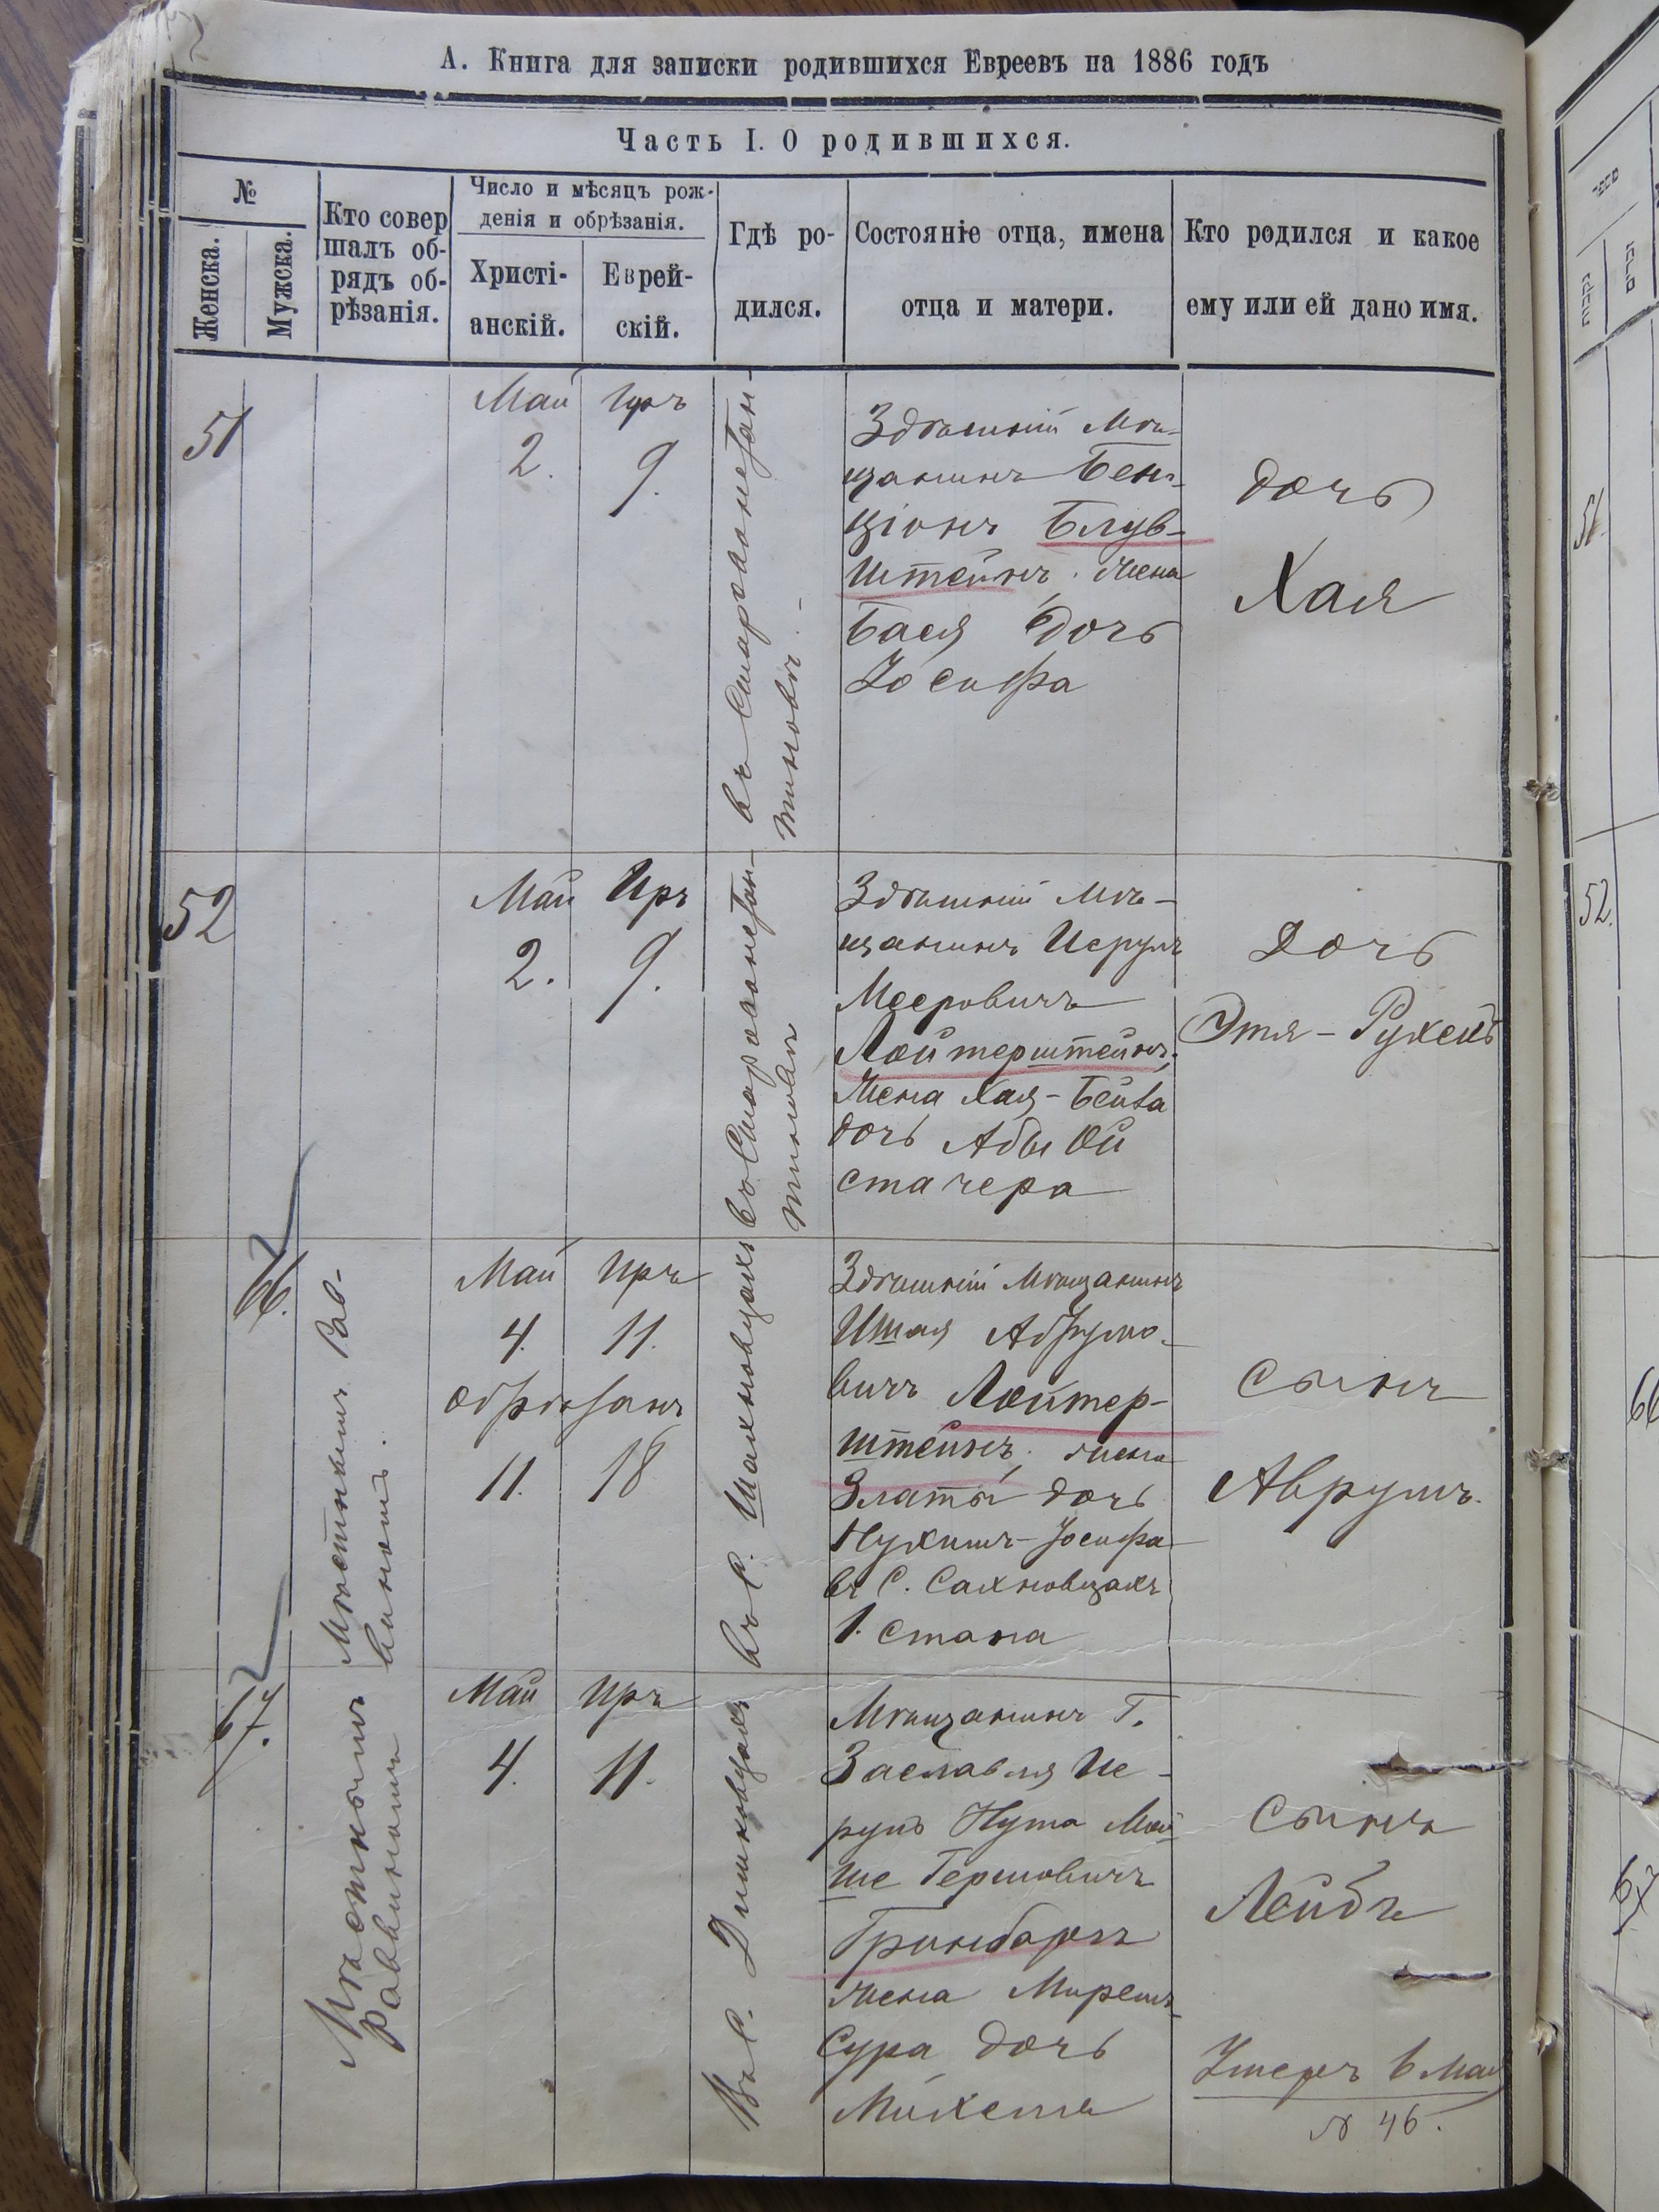 А. Книга для записки родившихся Евреевъ на 1886 годъ
Часть I. О родившихся.
№
Женска.
Мужска.
Кто совер
шалъ об-
рядъ об-
рѣзанія.
Число и мѣсяцъ рож-
денія и обрѣзанія.
Христі-
анскій.
Еврей-
скій.
Гдѣ ро-
дился.
Состояніе отца, имена
отца и матери.
Кто родился и какое
ему или ей дано имя.
51
Май
2.
Иръ
9.
въ Староконстан-
тиновѣ. –
Здѣшній Мѣ-
щанинъ Бен-
ціонъ Блув-
штейнъ, жена
Бася дочь
Іосифа
дочь
Хая
52
Май
2.
Иръ
9.
въ Староконстан-
тиновѣ
Здѣшній Мѣ-
щанинъ Исрулъ
Мееровичъ
Лойтерштейнъ,
жена Хая-Бейла
дочь Абы Ой
стачера
Дочь
Этя-Рухель
66.
Мѣстнымъ Рав-
виномъ.
Май Иръ
4. 11.
обрѣзанъ
11. 18
въ С. Шахновцахъ
Здѣшній Мѣщанинъ
Ишая Абрумо-
вичъ Лойтер-
штейнъ, жена
Злата дочь
Нухимъ-Іосифа
въ С. Сахновцахъ
1. Стана
Сынъ
Аврумъ.
67.
Мѣстнымъ
Раввиномъ
Май Иръ
4. 11.
Въ С.
Мѣщанинъ Г.
Заславля Ис-
рулъ Нута Мой
ше Гершовичъ
Гринбаргъ
жена Миремъ
Сура дочь
Михеля
Сынъ
Лейбъ
Умеръ 6 Мая
№ 46.
51.
52.
66
67